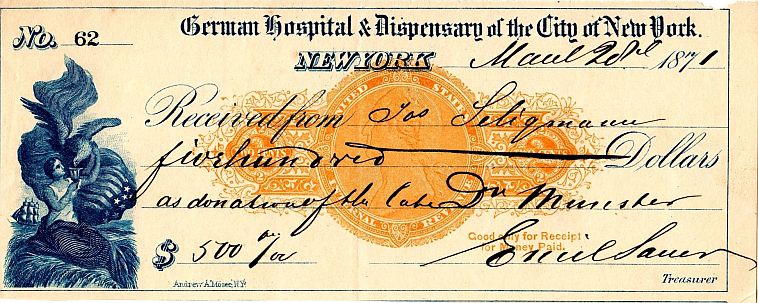 German Hospital & Dispensary of the City of New York.
No. 62
NEW YORK March 20th 1871
Received from Jos Seligmann
five hundred Dollars
as donation of the late Dr Münster
$ 500 00/00
UNITED STATES
INTERNAL REVENUE
Good only for Receipt
for Money Paid.
Emil Sauer
Treasurer
Andrew A. Moser, N.Y.